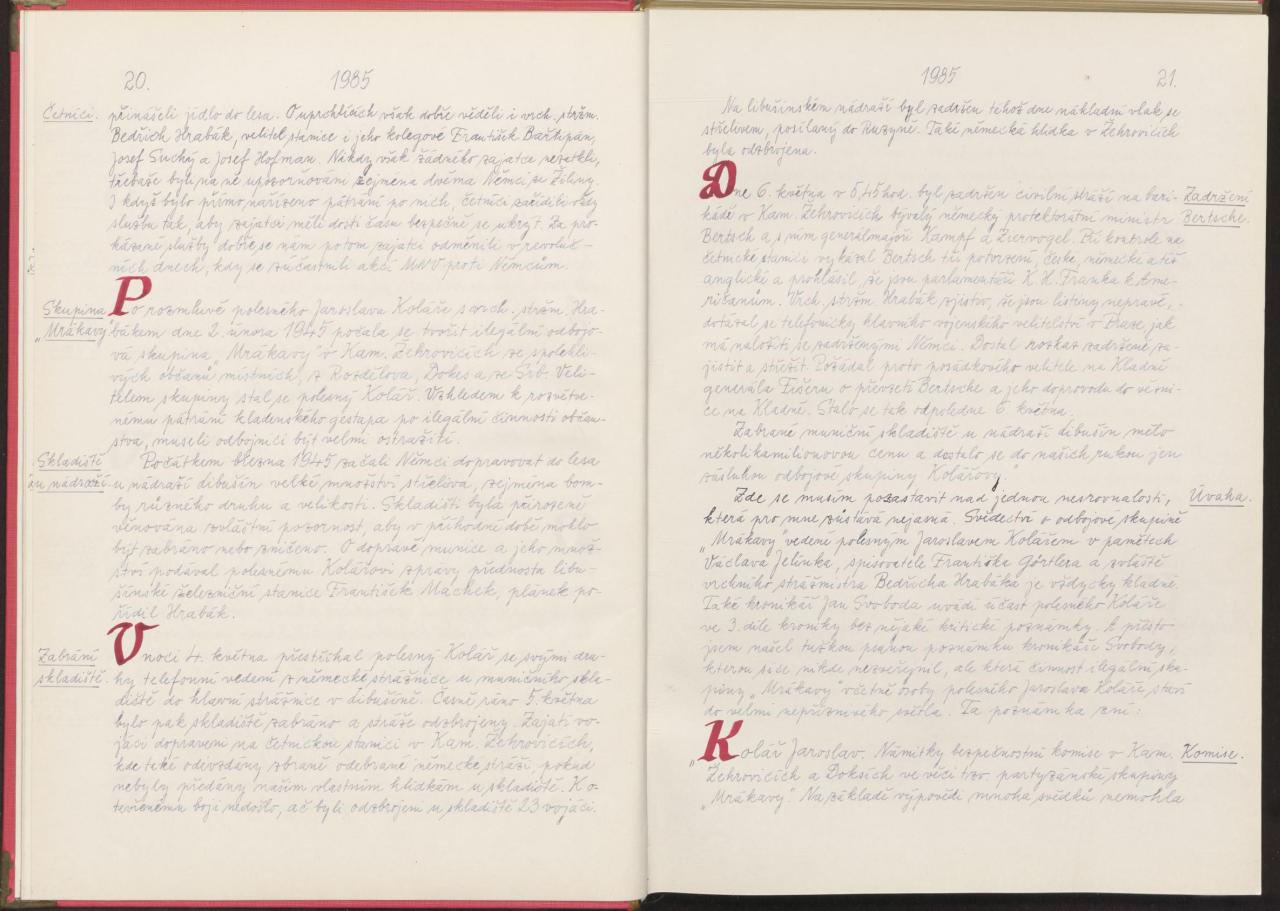 20. 1985
Četníci. přinášeli jídlo do lesa. O uprchlících však dobře věděli i vrch. stržm.
Bedřich Hrabák, velitel stanice i jeho kolegové František Bartipán,
Josef Suchý a Josef Hofman. Nikdy však žádného zajatce nezatkli,
třebaže byli na ně upozorňováni zejména dvěma Němci ze Žiliny.
I když bylo přímo nařízeno pátrání po nich, četníci zařídili vždy
službu tak, aby zajatci měli dosti času bezpečně se ukrýt. Za pro-
kázané služby dobře se nám potom zajatci odměnili v revoluč-
ních dnech, kdy se zúčastnili akcí MNV proti Němcům.
Skupina Po rozmluvě polesného Jaroslava Koláře s vrch. stržm. Hra-
„Mrákavy“ bákem dne 2. února 1945 počala se tvořit ilegální odbojo-
vá skupina „Mrákavy“ v Kam. Žehrovicích ze spolehli-
vých občanů místních, z Rozdělova, Doks a ze Srb. Veli-
telem skupiny stal se polesný Kolář. Vzhledem k rozvětve-
nému pátrání kladenského gestapa po ilegální činnosti občan-
stva, museli odbojníci být velmi ostražití.
Skladiště Počátkem března 1945 začali Němci dopravovat do lesa
u nádraží. u nádraží Libušín velké množství střeliva, zejména bom-
by různého druhu a velikosti. Skladišti byla přirozeně
věnována zvláštní pozornost, aby v příhodné době mohlo
být zabráno nebo zničeno. O dopravě munice a jeho množ-
ství podával polesnému Kolářovi zprávy přednosta libu-
šínské železniční stanice František Machek, plánek po-
řídil Hrabák.
Zabrání V noci 4. května přestříhal polesný Kolář se svými dru-
skladiště. hy telefonní vedení z německé strážnice u muničního skla-
diště do hlavní strážnice v Libušíně. Časně ráno 5. května
bylo pak skladiště zabráno a stráže odzbrojeny. Zajatí vo-
jáci dopraveni na četnickou stanici v Kam. Žehrovicích,
kde také odevzdány zbraně odebrané německé stráži, pokud
nebyly předány našim vlastním hlídkám u skladiště. K o-
tevřenému boji nedošlo, ač byli odzbrojeni u skladiště 23 vojáci.
1985 21.
Na libušínském nádraží byl zadržen téhož dne nákladní vlak se
střelivem, posílaný do Ruzyně. Také německá hlídka v Žehrovicích
byla odzbrojena.
Dne 6. května v 5,45 hod. byl zadržen civilní stráží na bari- Zadržení
kádě v Kam. Žehrovicích bývalý německý protektorátní ministr Bertsche.
Bertsch a s ním generálmajoři Kampf a Ziervogel. Při kontrole na
četnické stanici vykázal Bertsch tři potvrzení, české, německé a též
anglické a prohlásil, že jsou parlamentáři K. H. Franka k Ame-
ričanům. Vrch. stržm. Hrabák zjistiv, že jsou listiny nepravé,
dotázal se telefonicky hlavního vojenského velitelství v Praze, jak
má naložiti se zadrženými Němci. Dostal rozkaz zadržené za-
jistit a střežit. Požádal proto posádkového velitele na Kladně
generála Fišeru o převzetí Bertsche a jeho doprovodu do vězni-
ce na Kladně. Stalo se tak odpoledne 6. května.
Zabrané muniční skladiště u nádraží Libušín mělo
několikamilionovou cenu a dostalo se do našich rukou jen
zásluhou odbojové skupiny Kolářovy.“
Zde se musím pozastavit nad jednou nesrovnalostí, Úvaha.
která pro mne zůstává nejasná. Svědectví o odbojové skupině
„Mrákavy“ vedené polesným Jaroslavem Kolářem v pamětech
Václava Jelínka, spisovatele Františka Görtlera a zvláště
vrchního strážmistra Bedřicha Hrabáka je vždycky kladné.
Také kronikář Jan Svoboda uvádí účast polesného Koláře
ve 3. díle kroniky bez nějaké kritické poznámky. A přesto
jsem našel tužkou psanou poznámku kronikáře Svobody,
kterou sice nikde nezveřejnil, ale která činnost ilegální sku-
piny „Mrákavy“ včetně osoby polesného Jaroslava Koláře staví
do velmi nepříznivého světla. Ta poznámka zní:
„Kolář Jaroslav. Námitky bezpečnostní komise v Kam. Komise.
Žehrovicích a Doksích ve věci tzv. partyzánské skupiny
„Mrákavy“. Na základě výpovědí mnoha svědků nemohla